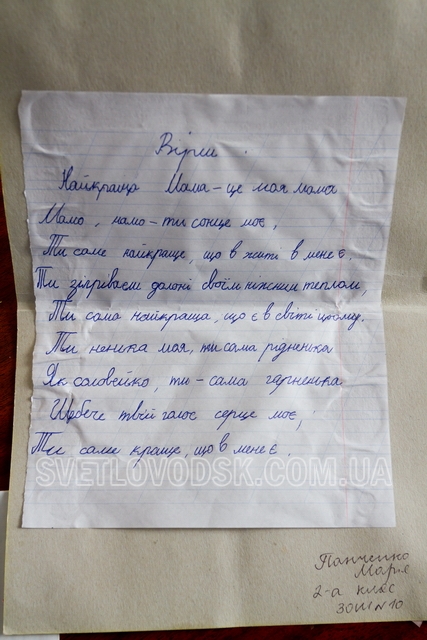 Вірш.
Найкраща Мама - це моя мама
Мамо, мамо - ти сонце моє,
Ти саме найкраще, що в житі в мене є.
Ти зігріваєш долоні своїм ніжним теплом,
Ти сама найкраща, що є в світі цьому.
Ти ненька моя, ти сама рідненька
Як соловейко, ти - сама гарненька
Щебече твій голос серце моє,
Ти саме краще, що в мене є.
SVETLOVODSK.COM.UA
Панченко
Мария
2-а клас
ЗОШ №10